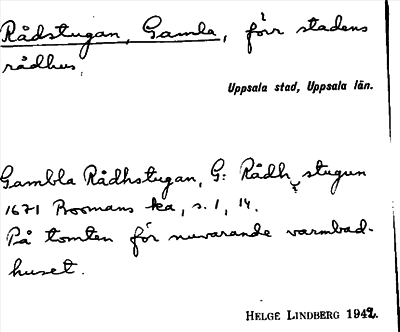 Rådstugan, Gamla, förr stadens
rådhus.
Uppsala stad, Uppsala län.
Gambla Rådhstugan, G: Rådh stugun
1671 Boomans ka, s. 1, 14.
På tomten för nuvarande varmbad-
huset.
HELGE LINDBERG 1942.